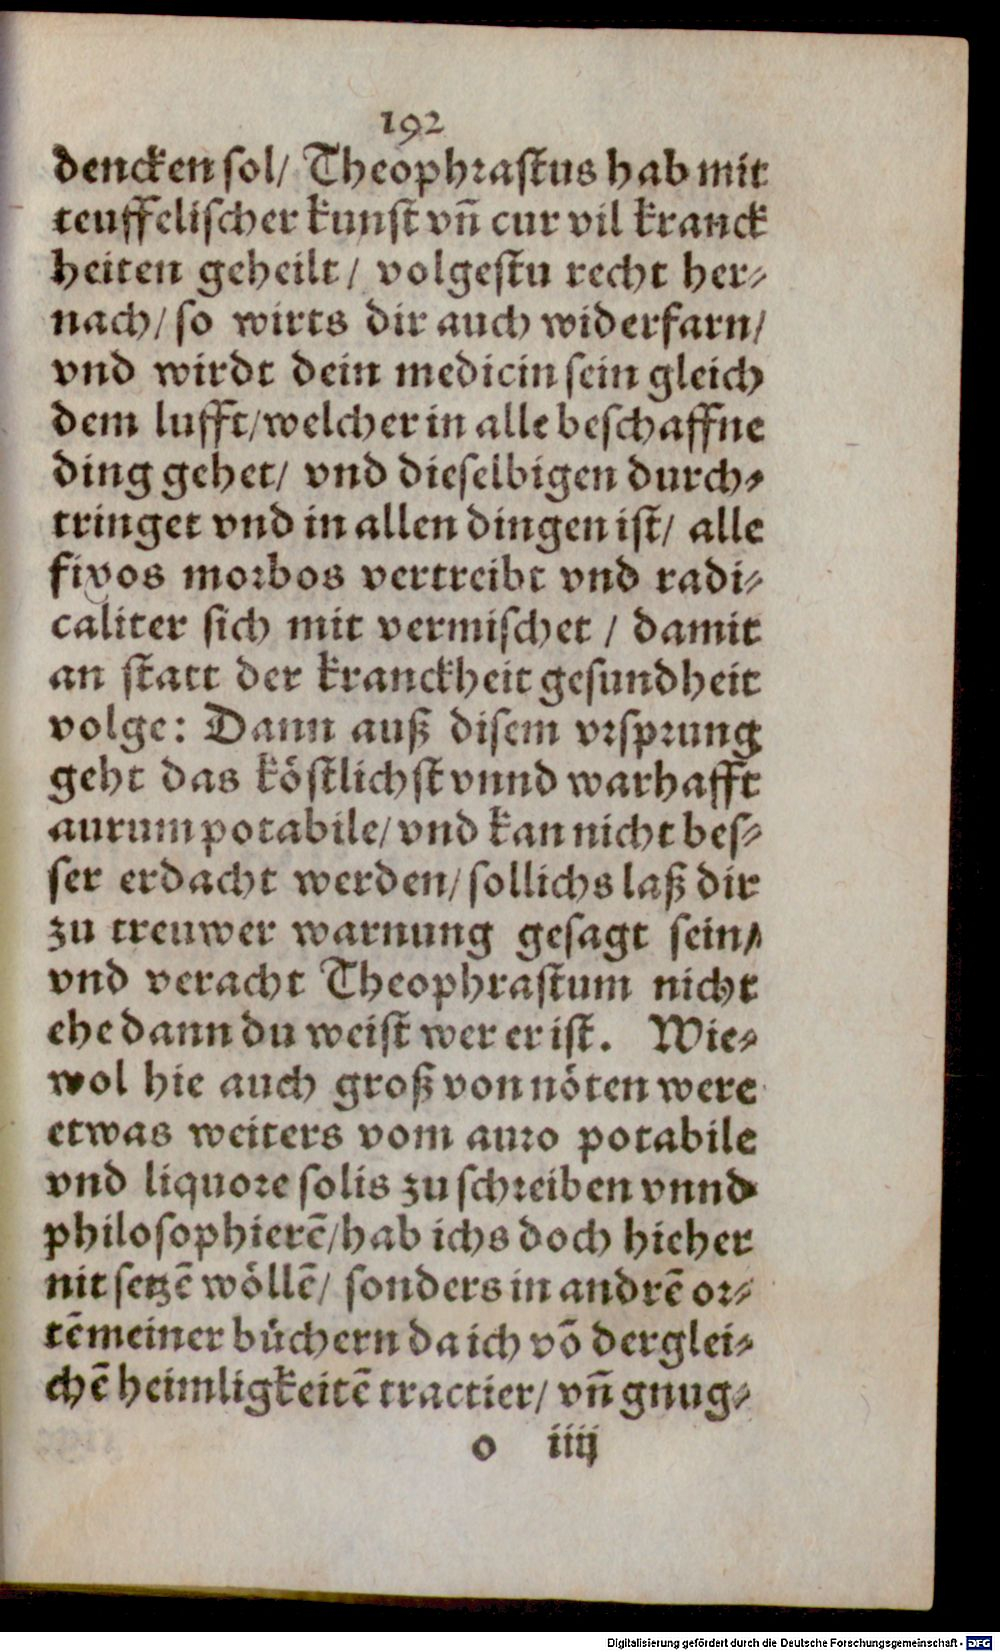 192
dencken sol/ Theophrastus hab mit
teuffelischer kunst vn̄ cur vil kranck
heiten geheilt/ volgestu recht her⸗
nach/ so wirts dir auch widerfarn/
vnd wirdt dein medicin sein gleich
dem lufft/welcher in alle beschaffne
ding gehet/ vnd dieselbigen durch⸗
tringet vnd in allen dingen ist/ alle
fixos morbos vertreibt vnd radi⸗
caliter sich mit vermischet / damit
an statt der kranckheit gesundheit
volge: Dann auß disem vrsprung
geht das köstlichst vnnd warhafft
aurum potabile/ vnd kan nicht bes⸗
ser erdacht werden/ sollichs laß dir
zu treuwer warnung gesagt sein/
vnd veracht Theophrastum nicht
ehe dann du weist wer er ist. Wie⸗
wol hie auch groß von nöten were
etwas weiters vom auro potabile
vnd liquore solis zu schreiben vnnd
philosophierē/hab ichs doch hieher
nit setzē wöllē/ sonders in andrē or⸗
tē meiner büchern da ich vō derglei⸗
chē heimligkeitē tractier/ vn̄ gnug⸗
o iiij
Digitalisierung gefördert durch die Deutsche Forschungsgemeinschaft - DFG